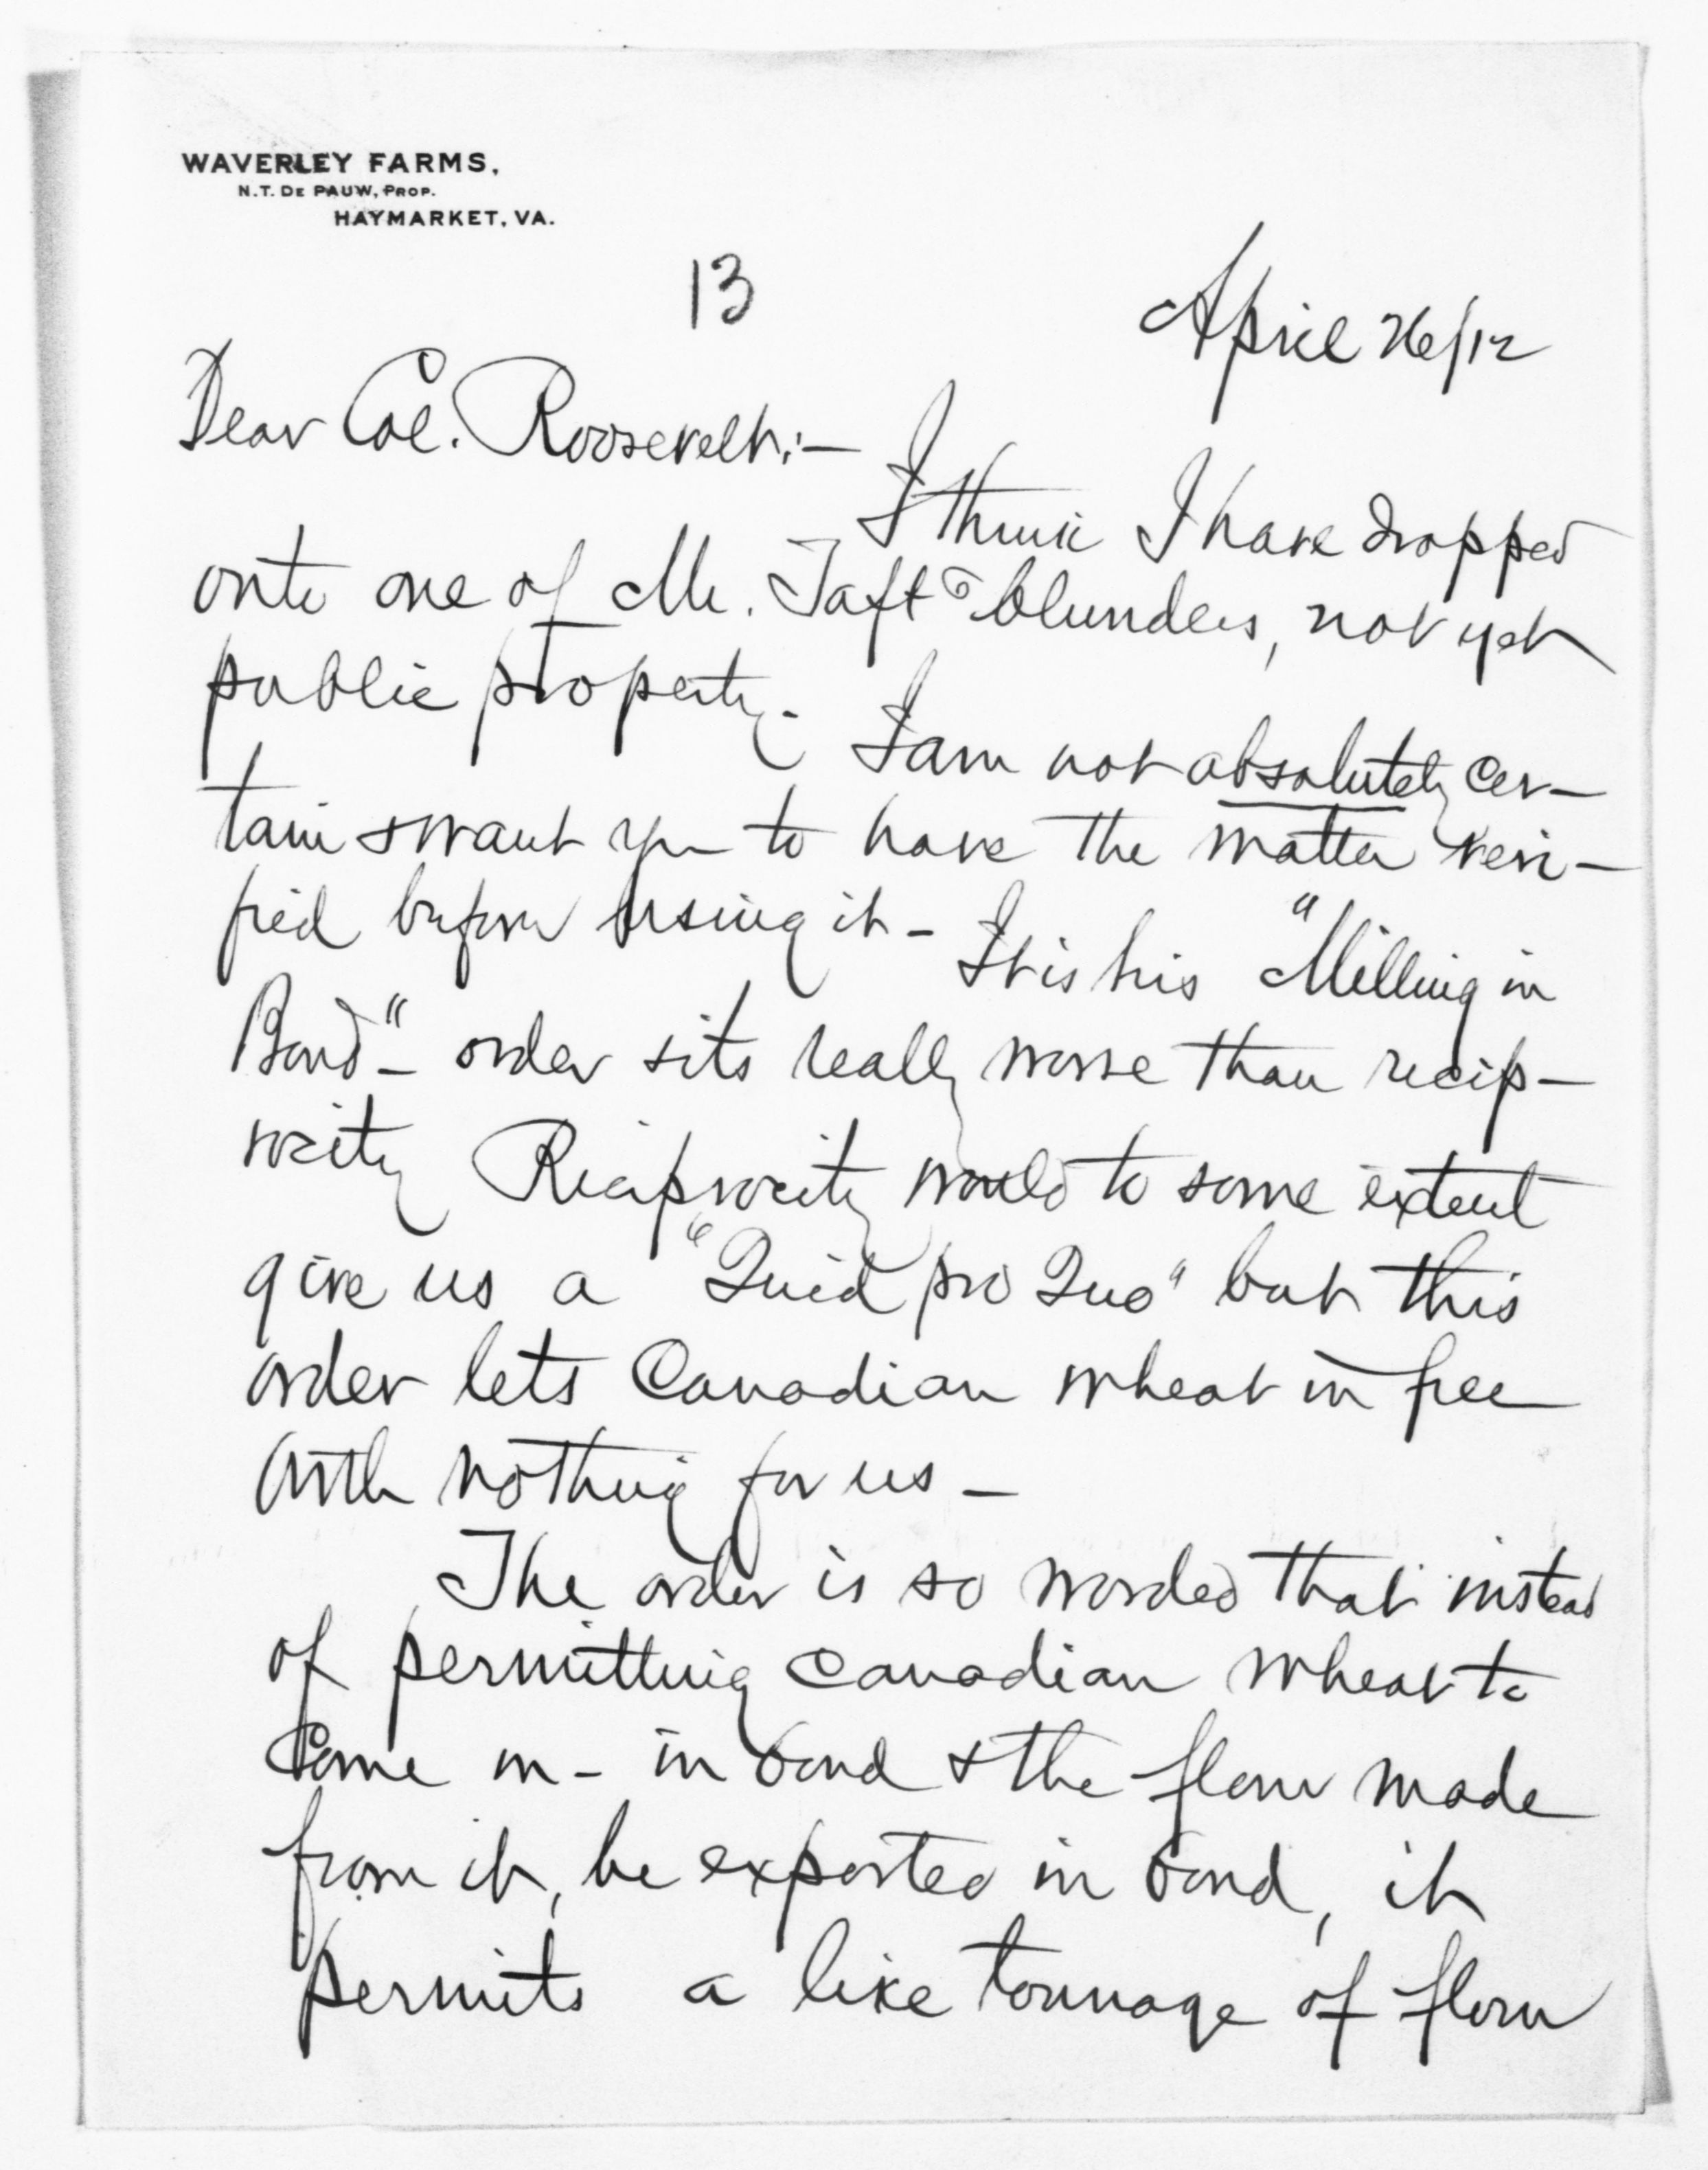 WAVERLEY FARMS,
N.T. DE PAUW, PROP.
HAYMARKET, VA.
13
April 26/12
Dear Col. Roosevelt:—
I think I have dropped
onto one of Mr. Taft's blunders, not yet
public property. I am not absolutely cer-
tain & want you to have the matter veri-
fied before using it - It is his "Milling in
Bond" - order & its really worse than recip-
rocity Reciprocity would to some extent
give us a "Quid pro Quo" but this
order lets Canadian wheat in free
with nothing for us -
The order is so worded that instead
of permitting Canadian wheat to
come in - in bond & the flour made
from it, be exported in bond, it
permits a like tonnage of flour